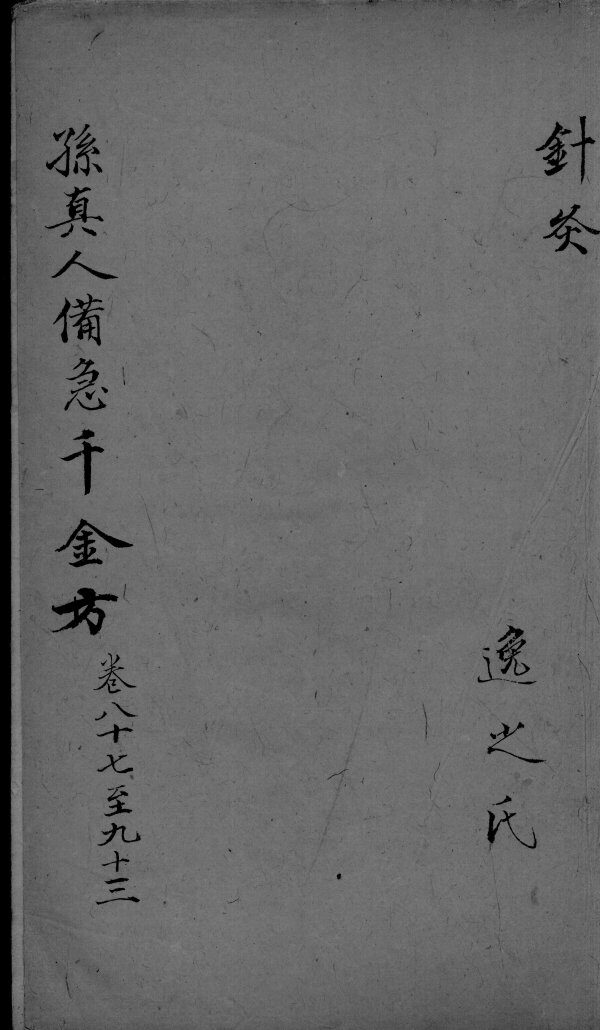 針灸
逸之氏
孫真人備急千金方
卷八十七至九十三